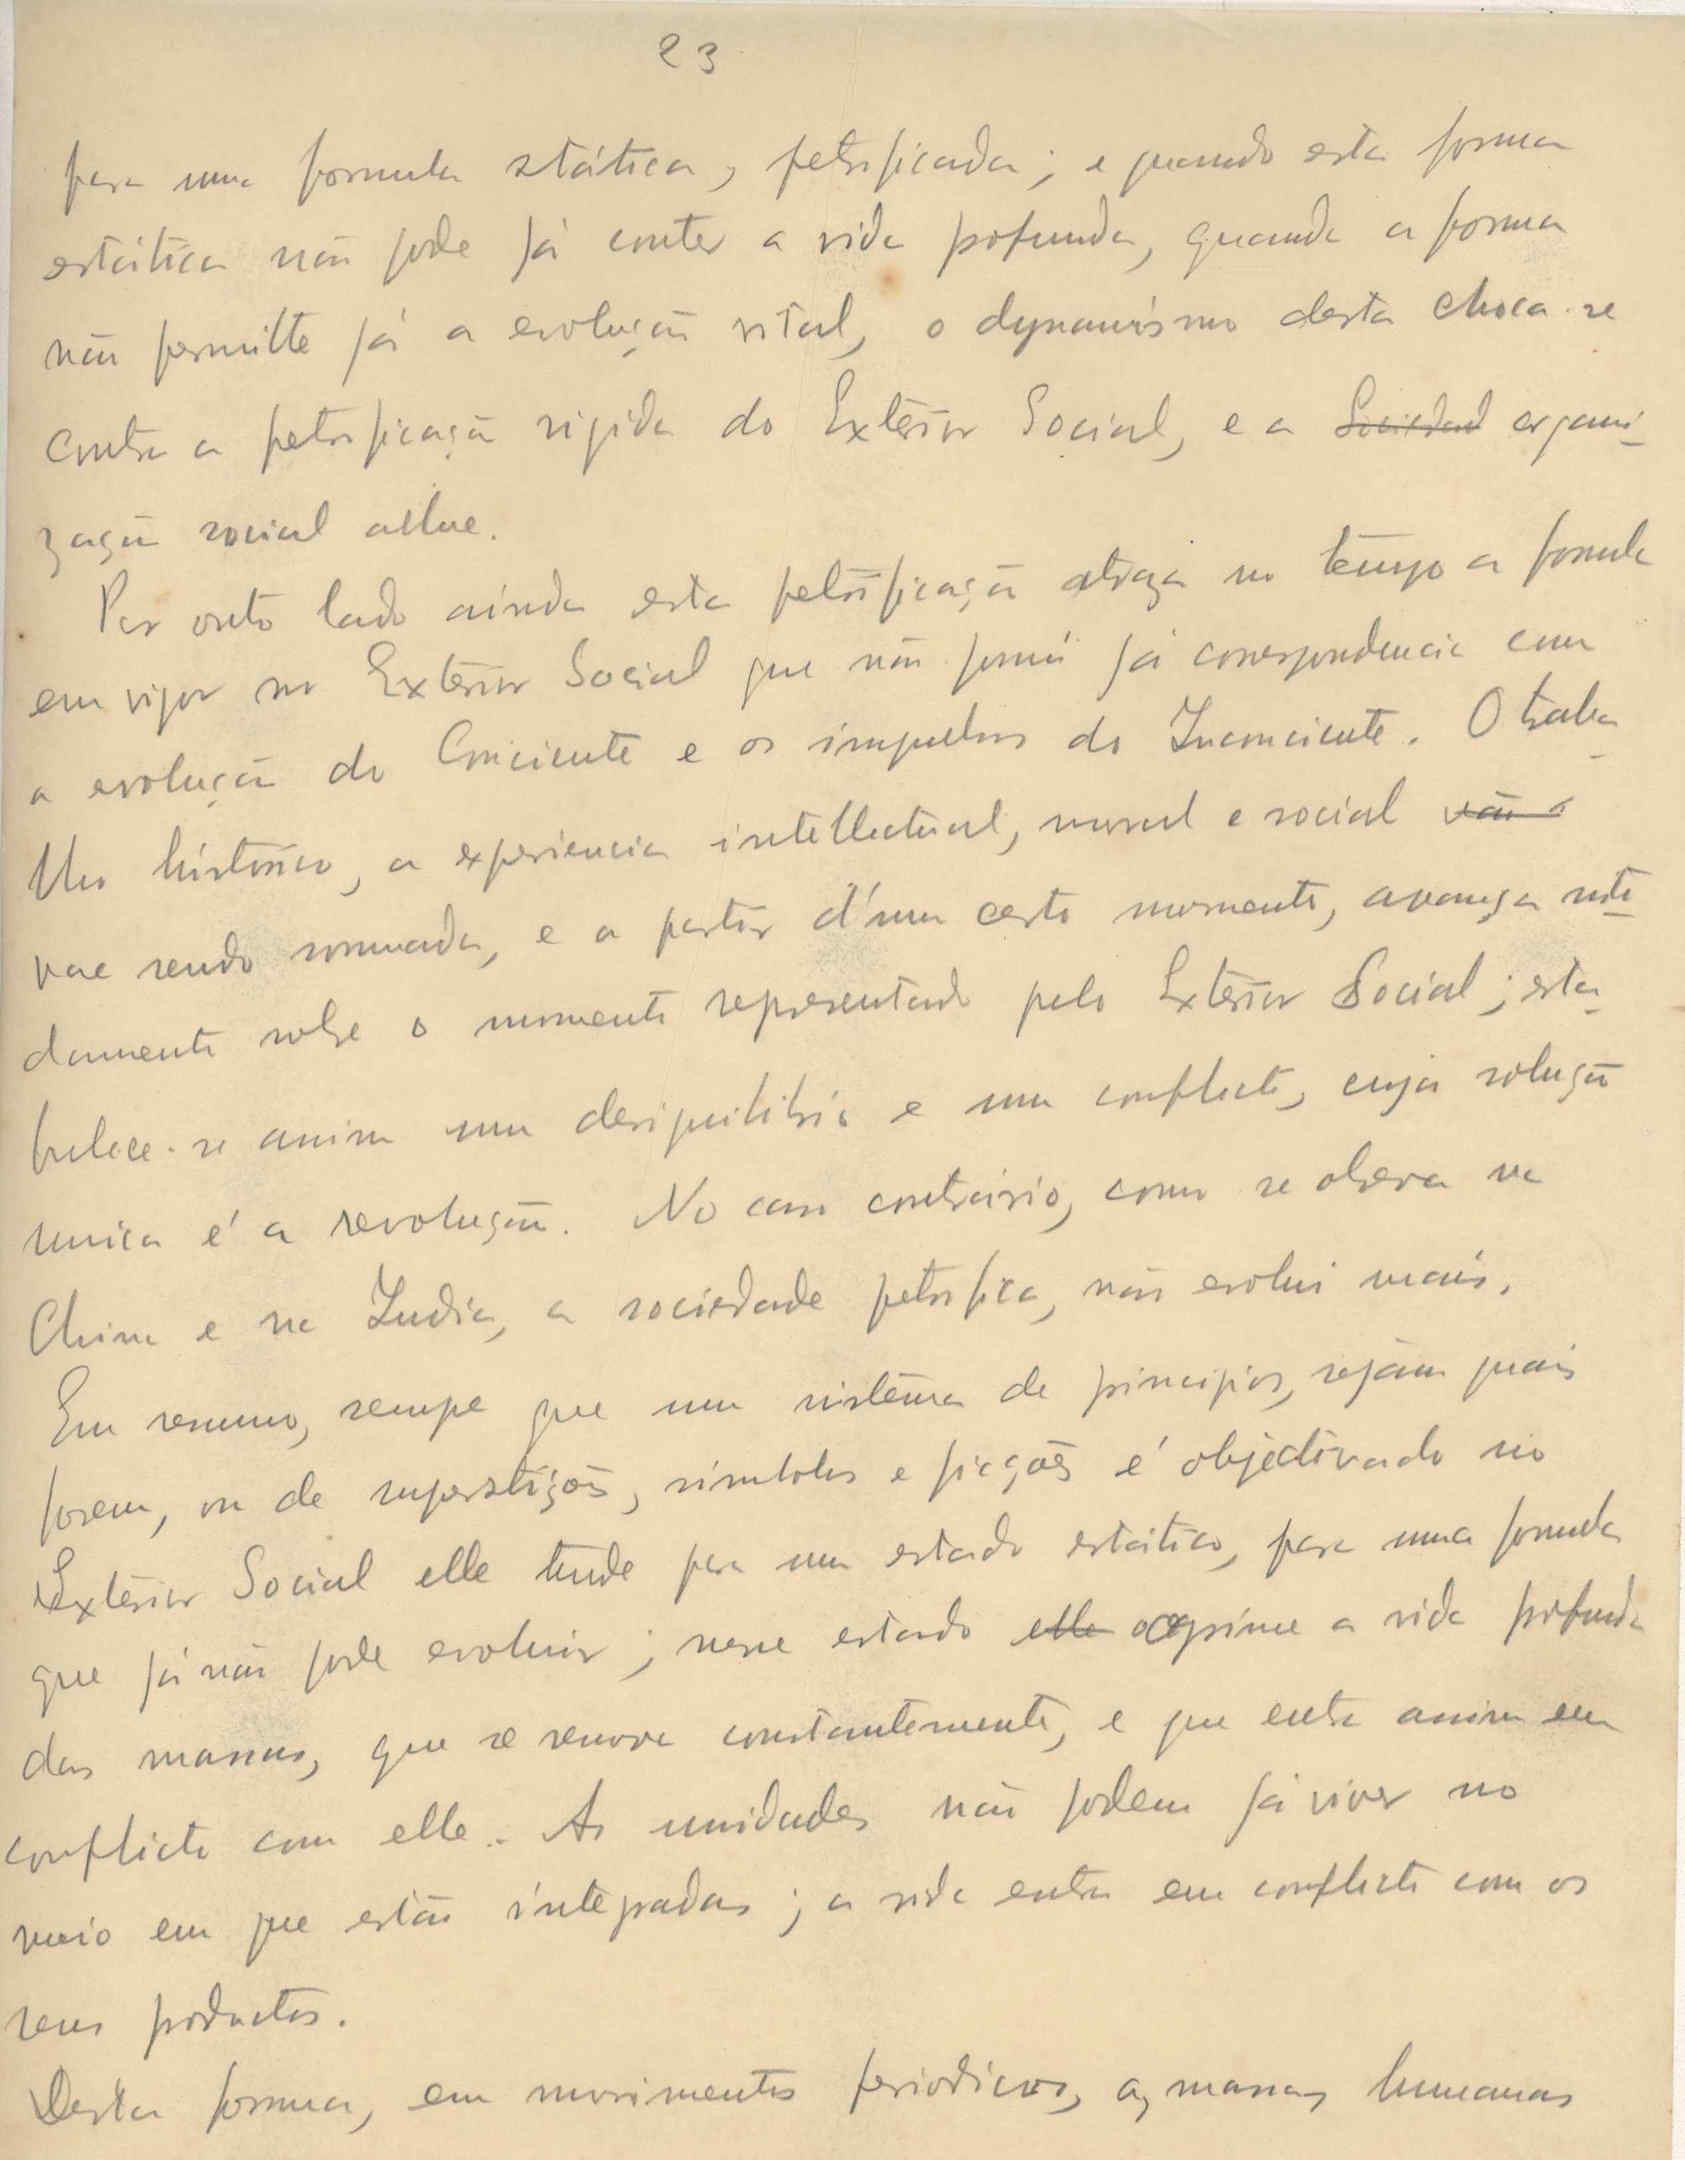 23
para uma formula státtica, petrificada; e quando esta forma
estática não pode já conter a vida profunda, quando a forma
não permitte já a evolução vital, o dynamismo desta choca-se
contra a petrificação rigida do Extèrior Social, e a Sociedad organi-
zação social allue.
Por outo lado ainda esta petrificação atraza no tempo a formula
em vigor no Extèrior Social que não já correspondencia com
a evolução do Conciente e os impulsos do Inconciente. O traba-
lho histórico, a experiencia intellectual, moral e social vão
vae sendo sommada, e a partir d'um certo momento, avança
damente sobre o momento representado pelo Extèrior Social; esta-
belece-se assim um desiquilibrio e um conflicto, cuja solução
unica é a revolução. No caso contrário, como se observa na
China e na India, a sociedade petrifica, não evolui mais.
Em resumo, sempre que um sistèma de principios, sejam quais
forem, ou de superstições, simbolos e ficções é objectivado no
Extèrior Social elle tende para um estado estático, para uma formula
que já não pode evoluir; nesse estado elle opprime a vida profunda
das massas, que se renova constantemente, e que entra assim em
conflicto com elle. As unidades não podem já viver no
meio em que estão integradas; a vida entra em conflicto com os
seus productos.
Desta forma, em movimentos periodicos, as massas humanas